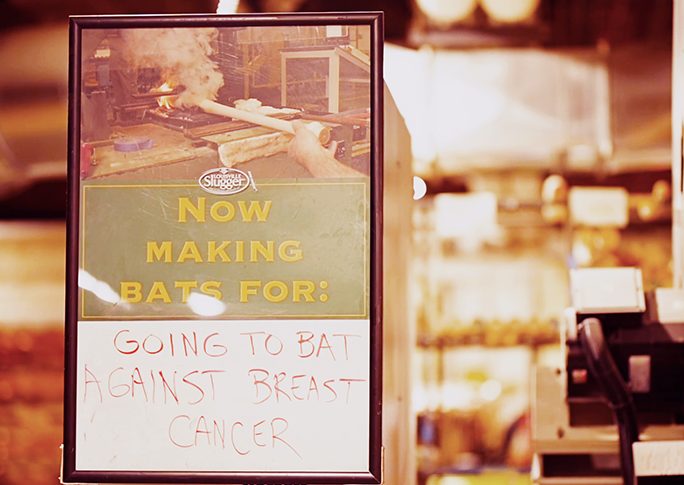 LOUISVILLE
Slugger
NOW
MAKING
BATS FOR:
GOING TO BAT
AGAINST BREAST
CANCER